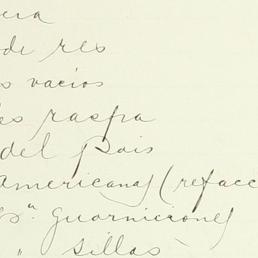 era
de res
s vacios
es raspa
del Pais
americanas (refacc
Ba. Guarniciones
" Sillas